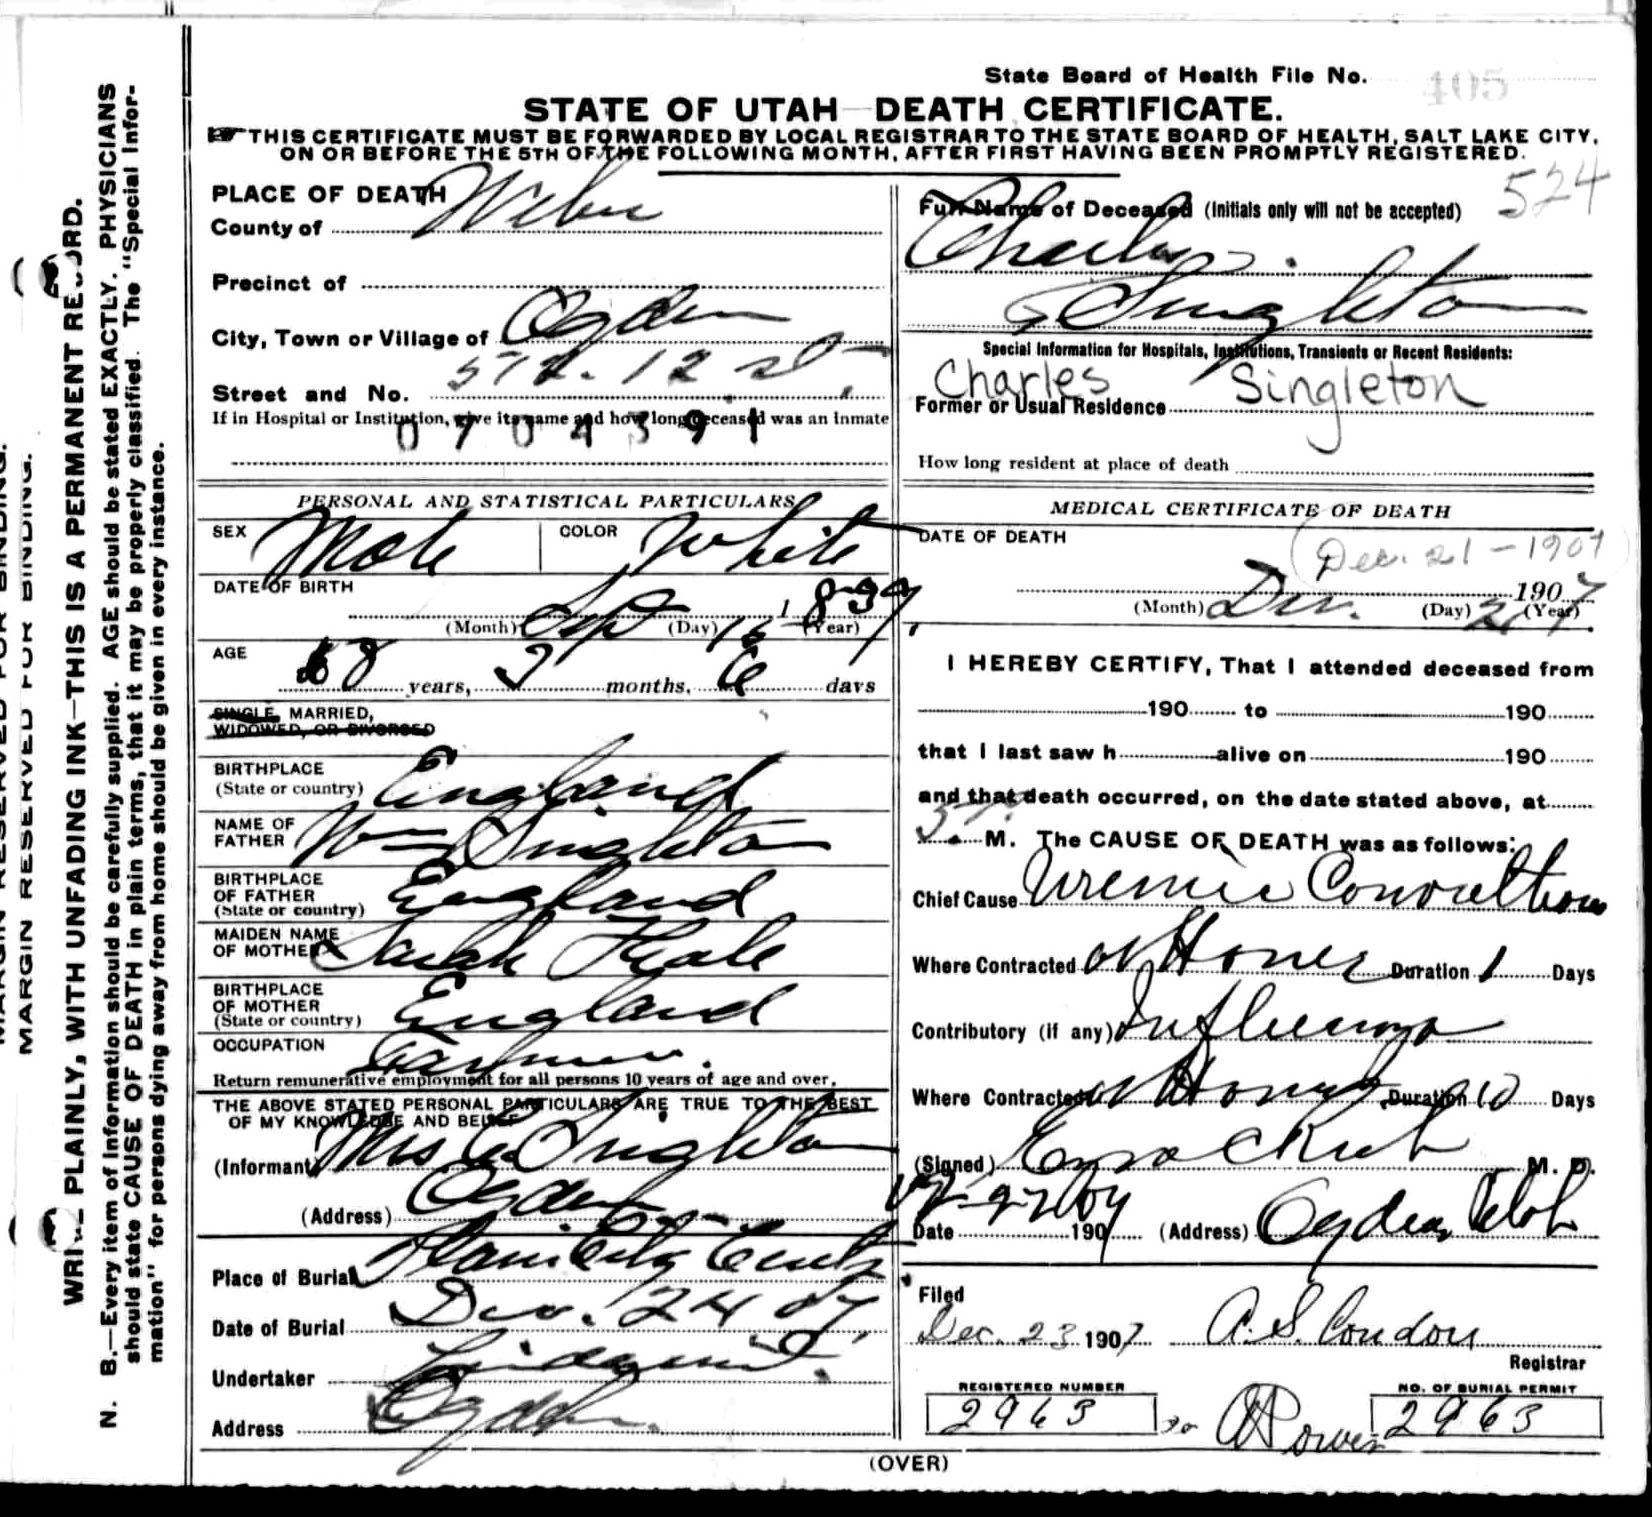 State Board of Health File No. 405
STATE OF UTAH—DEATH CERTIFICATE.
THIS CERTIFICATE MUST BE FORWARDED BY LOCAL REGISTRAR TO THE STATE BOARD OF HEALTH, SALT LAKE CITY,
ON OR BEFORE THE 5TH OF THE FOLLOWING MONTH, AFTER FIRST HAVING BEEN PROMPTLY REGISTERED.
524
MARGIN RESERVED FOR BINDING.
MARGIN RESERVED FOR BINDING.
WRITE PLAINLY, WITH UNFADING INK—THIS IS A PERMANENT RECORD.
N. B.—Every item of Information should be carefully supplied. AGE should be stated EXACTLY. PHYSICIANS
should state CAUSE OF DEATH in plain terms, that it may be properly classified. The "Special Infor-
mation" for persons dying away from home should be given in every instance.
PLACE OF DEATH
County of Weber
Precinct of
City, Town or Village of Ogden
Street and No. 572. 12 St.
If in Hospital or Institution, give its name and how long deceased was an inmate
0704391
PERSONAL AND STATISTICAL PARTICULARS
SEX Male COLOR White
DATE OF BIRTH
(Month) Sep (Day) 15 1839 (Year)
AGE
68 years, 3 months, 6 days
SINGLE, MARRIED,
WIDOWED, OR DIVORCED
BIRTHPLACE
(State or country) England
NAME OF
FATHER Wm Singleton
BIRTHPLACE
OF FATHER
(State or country) England
MAIDEN NAME
OF MOTHER Sarah
BIRTHPLACE
OF MOTHER
(State or country) England
OCCUPATION Farmer.
Return remunerative employment for all persons 10 years of age and over.
THE ABOVE STATED PERSONAL PARTICULARS ARE TRUE TO THE BEST
OF MY KNOWLEDGE AND BELIEF
(Informant) Mrs C Singleton
(Address) Ogden
Place of Burial Plain City Cemty
Date of Burial Dec. 24 07
Undertaker Lindquist.
Address Ogden.
Full Name of Deceased (Initials only will not be accepted)
Charles
Singleton
Special Information for Hospitals, Institutions, Transients or Recent Residents:
Charles Singleton
Former or Usual Residence
How long resident at place of death
MEDICAL CERTIFICATE OF DEATH
DATE OF DEATH
Dec. 21-1907
(Month) Dec. (Day) 21 1907 (Year)
I HEREBY CERTIFY, That I attended deceased from
190 to 190
that I last saw h alive on 190
and that death occurred, on the date stated above, at
M. The CAUSE OF DEATH was as follows:
Chief Cause Uremic Convultions
Where Contracted at Home Duration 1 Days
Contributory (if any) Influenza
Where Contracted at Home Duration 10 Days
(Signed) Ezra C Rich M. D.
Date 12-22 1907 (Address) Ogden Utah
Filed
Dec. 23 1907 A. S. Condon
Registrar
REGISTERED NUMBER
2963
NO. OF BURIAL PERMIT
2963
(OVER)